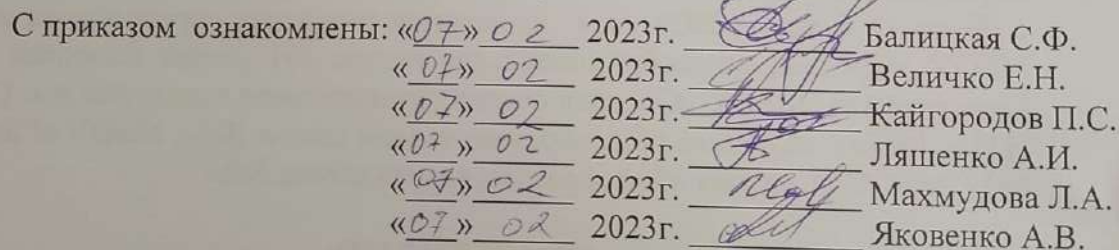 С приказом ознакомлены: «07» 02 2023г. Балицкая С.Ф.
«07» 02 2023г. Величко Е.Н.
«07» 02 2023г. Кайгородов П.С.
«07» 02 2023г. Ляшенко А.И.
«07» 02 2023г. Махмудова Л.А.
«07» 02 2023г. Яковенко А.В.